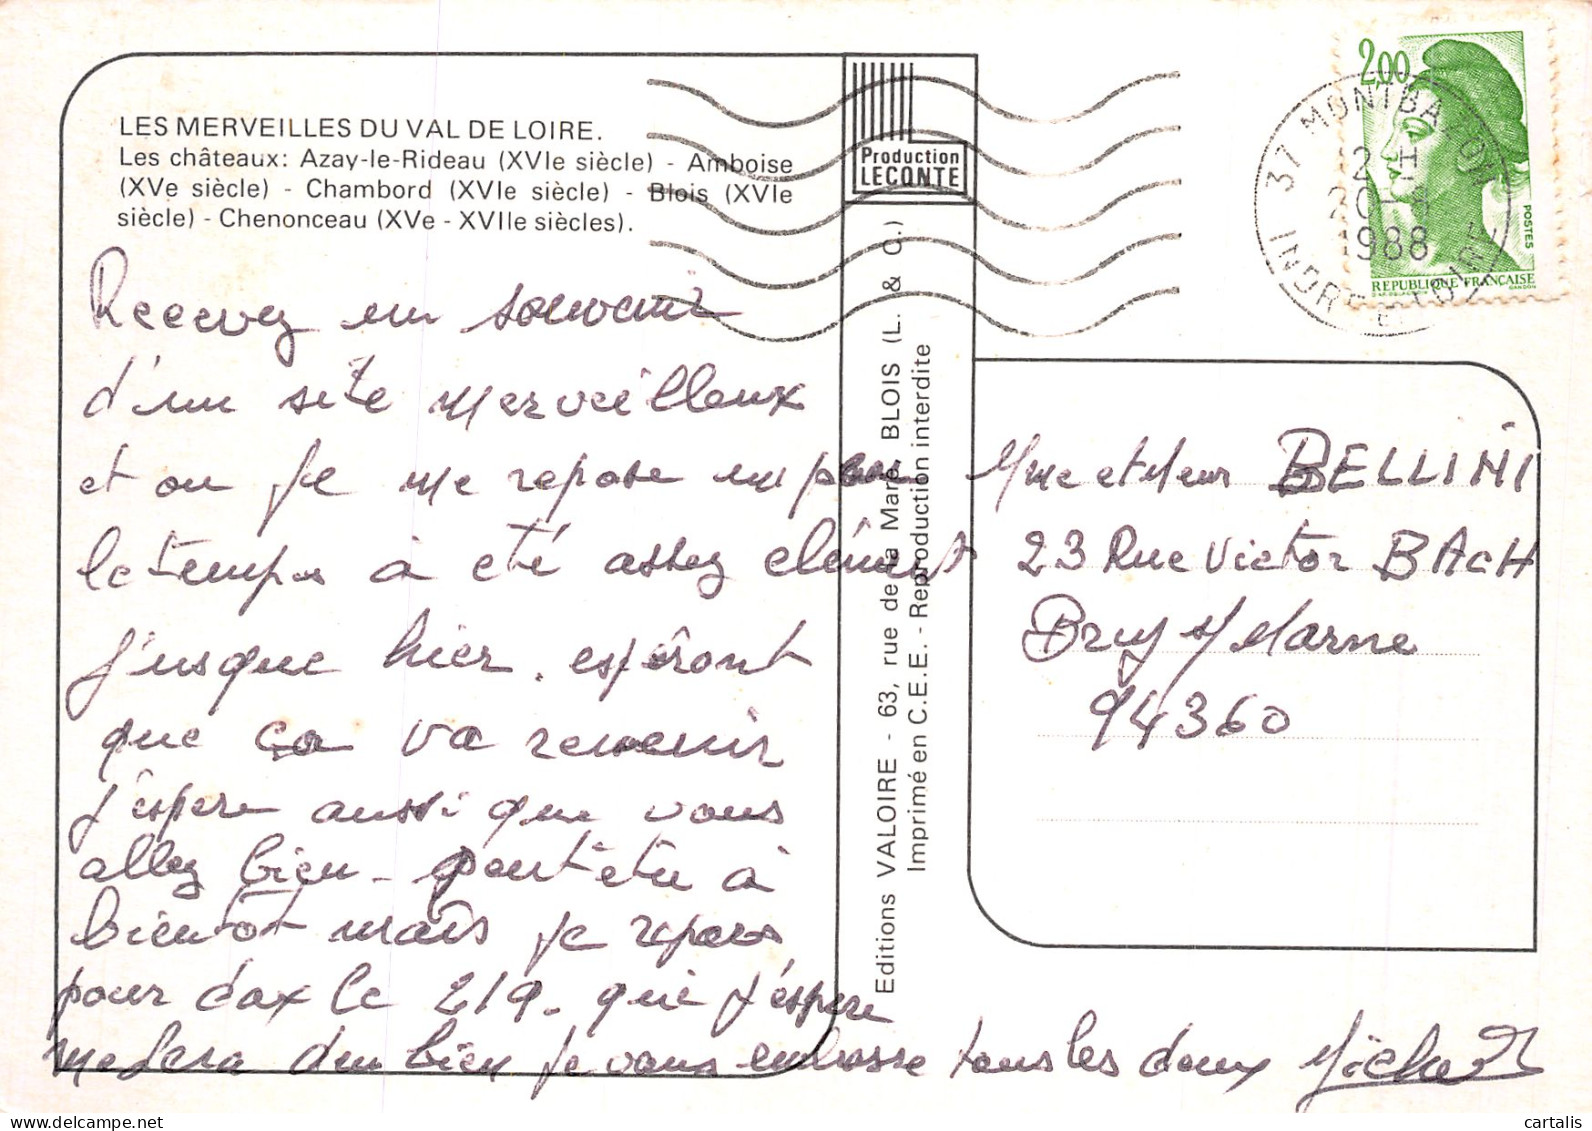 LES MERVEILLES DU VAL DE LOIRE.
Les châteaux: Azay-le-Rideau (XVIe siècle) - Amboise
(XVe siècle) - Chambord (XVIe siècle) - Blois (XVIe
siècle) - Chenonceau (XVe - XVIIe siècles).
Production
LECONTE
2,00
POSTES
REPUBLIQUE FRANÇAISE
GANDON
37 MONTBAZON
12 H
1988
INDRE ET LOIRE
Recevez un souvenir
d'un site merveilleux
et ou je me repose un peu
le temps à été assez clément
jusque hier. espéront
que ça va revenir
j'espere aussi que vous
allez bien - peut etre à
bientôt mais je repars
pour dax le 2/9. qui j'éspere
me fera du bien je vous embrasse tous les deux
Editions VALOIRE - 63, rue de la Mare, BLOIS (L. & C.)
Imprimé en C.E.E. - Reproduction interdite
Mme et Meur BELLINI
23 Rue Victor BACH
Bry s/ Marne
94360
cartalis